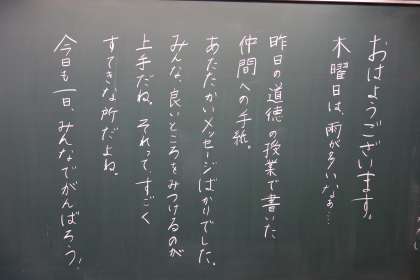 おはようございます。
木曜日は、雨が多いなぁ…
昨日の道徳の授業で書いた
仲間への手紙。
あたたかいメッセージばかりでした。
みんな、良いところをみつけるのが
上手だね。それって、すごく
すてきな所だよね。
今日も一日、みんなでがんばろう！